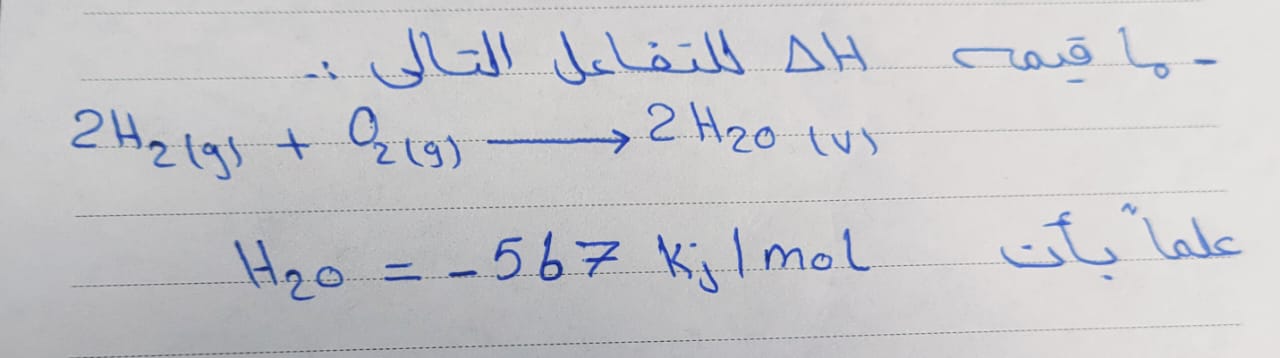 - ما قيمة ΔH للتفاعل التالى :-
2H₂(g) + O₂(g) ⟶ 2H₂O (v)
علماً بأن H₂O = -567 Kj/mol